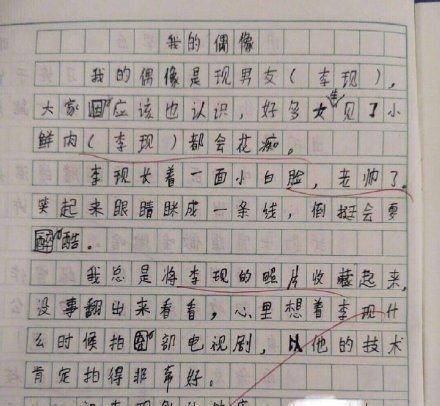 我的偶像
我的偶像是现男友（李现），
大家应该也认识，好多女生见了小
鲜肉（李现）都会花痴。
李现长着一面小白脸，老帅了。
笑起来眼睛眯成一条线，倒挺会耍
酷。
我总是将李现的照片收藏起来，
没事翻出来看看，心里想着李现什
么时候拍部电视剧，以他的技术
肯定拍得非常好。